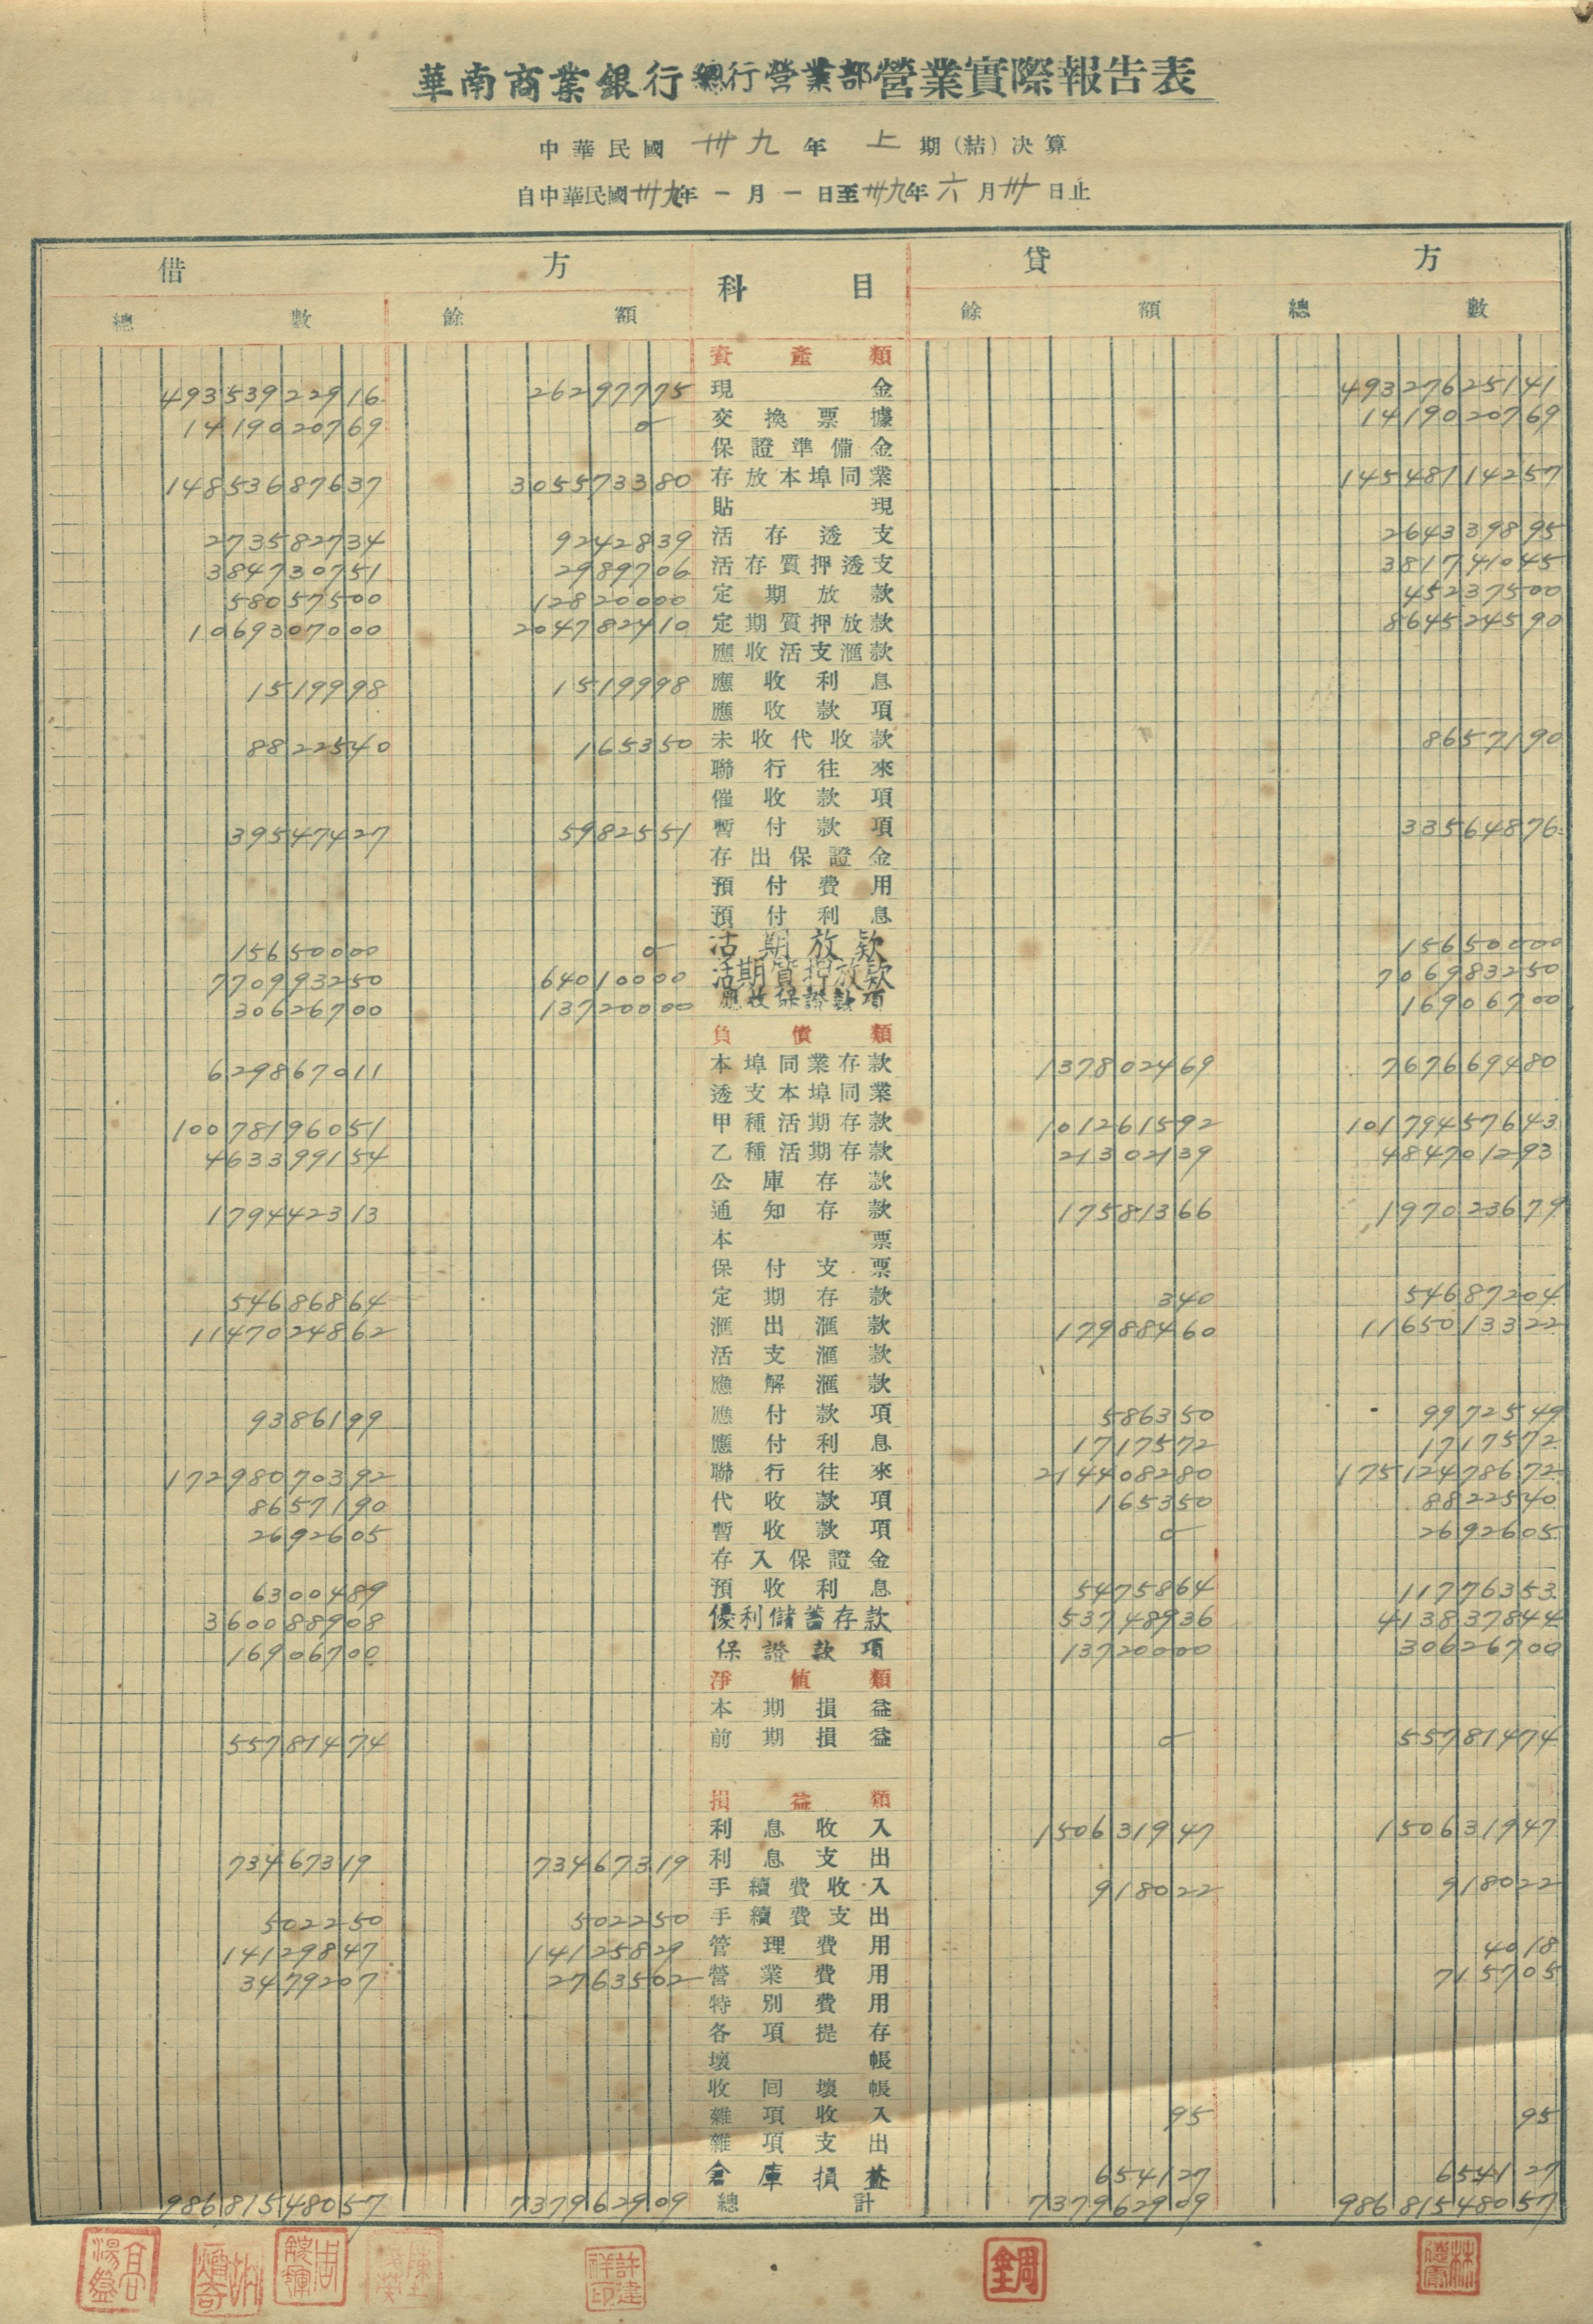 華南商業銀行總行營業部營業實際報告表
中華民國 卅九 年 上 期(結)決算
自中華民國卅九年 一月 一日至卅九年 六 月 卅 日止
借 方 科 目 貸 方
總 數 餘 額 餘 額 總 數
資產類
49353922916 26297775 現金 49327625141
1419020769 0 交換票據 1419020769
保證準備金
14853687637 305573380 存放本埠同業 14548114257
貼現
273582734 9242839 活存透支 264339895
384730751 2989706 活存質押透支 381741045
58057500 12820000 定期放款 45237500
1069307000 204782410 定期質押放款 864524590
應收活支滙款
1519998 1519998 應收利息
應收款項
8822540 165350 未收代收款 8657190
聯行往來
催收款項
39547427 5982551 暫付款項 33564876
存出保證金
預付費用
預付利息
15650000 0 活期放款 15650000
770993250 64010000 活期質押放款 706983250
30626700 13720000 應收保證款項 16906700
負債類
629867011 本埠同業存款 137802469 767669480
透支本埠同業
10078196051 甲種活期存款 101261592 10179457643
463399154 乙種活期存款 21302139 484701293
公庫存款
179442313 通知存款 17581366 197023679
本票
保付支票
54686864 定期存款 340 54687204
1147024862 滙出滙款 17988460 1165013322
活支滙款
應解滙款
9386199 應付款項 586350 9972549
應付利息 1717572 1717572
17298070392 聯行往來 214408280 17512478672
8657190 代收款項 165350 8822540
2692605 暫收款項 0 2692605
存入保證金
6300489 預收利息 5475864 11776353
360088908 優利儲蓄存款 53748936 413837844
16906700 保證款項 13720000 30626700
淨值類
本期損益
55781474 前期損益 0 55781474
損益類
利息收入 150631947 150631947
73467319 73467319 利息支出
手續費收入 918022 918022
502250 502250 手續費支出
14129847 14125829 管理費用 4018
3479207 2763502 營業費用 715705
特別費用
各項提存
壞帳
收回壞帳
雜項收入 95 95
雜項支出
倉庫損益 654127 654127
98681548057 737962909 總計 737962909 98681548057
許建祥印